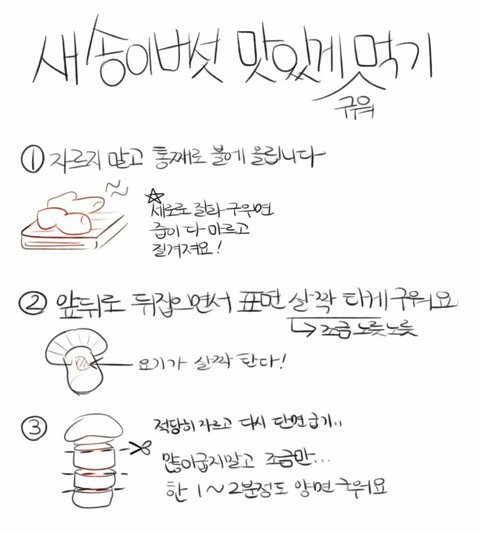 새송이버섯 맛있게 먹기
구워
① 자르지 말고 통째로 불에 올립니다
☆세로로 잘라 구우면
즙이 다 마르고
질겨져요!
② 앞뒤로 뒤집으면서 표면 살짝 타게 구워요
↳ 조금 노릇노릇
요기가 살짝 탄다!
③ 적당히 자르고 다시 단면 굽기..
많이굽지말고 조금만...
한 1~2분정도 양면 구워요